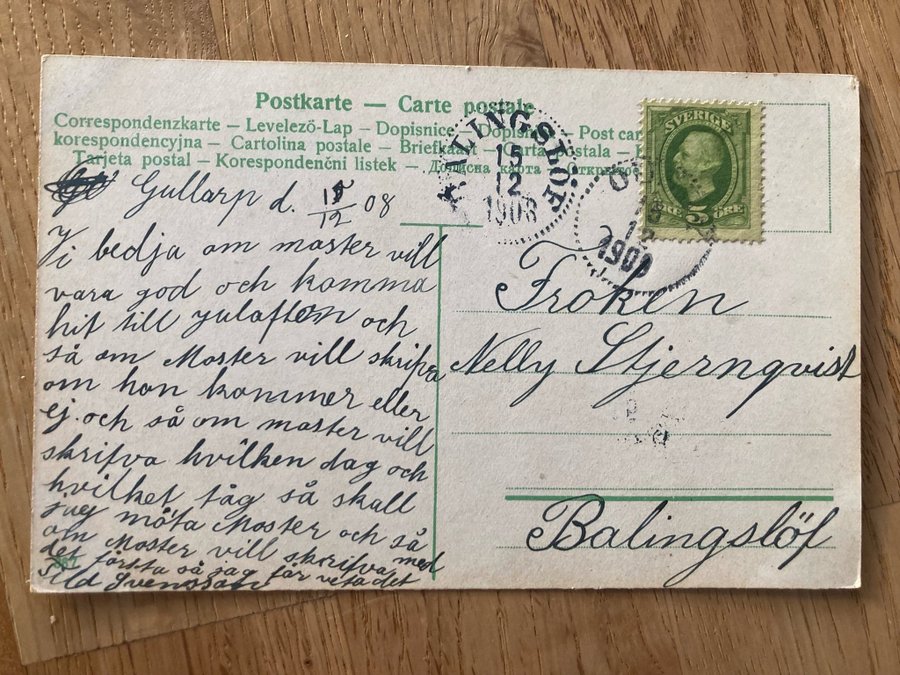 Postkarte — Carte postale
Correspondenzkarte – Levelező-Lap – Dopisnice – Dopisnica – Post car
korespondencyjna – Cartolina postale – Briefkaart – Karta postala –
Tarjeta postal – Korespondenční listek – Дописна карта – ткрытое
SVERIGE
5 ÖRE
BALINGSLÖF
15
12
1908
1908
Gullarp d. 15/12 08
Vi bedja om moster vill
vara god och komma
hit till julafton och
så om Moster vill skrifva
om hon kommer eller
ej. och så om moster vill
skrifva hvilken dag och
hvilket tåg så skall
jag möta Moster och så
om Moster vill skrifva med
det första så jag får veta det
Svensson
Fröken
Nelly Stjernqvist
Balingslöf